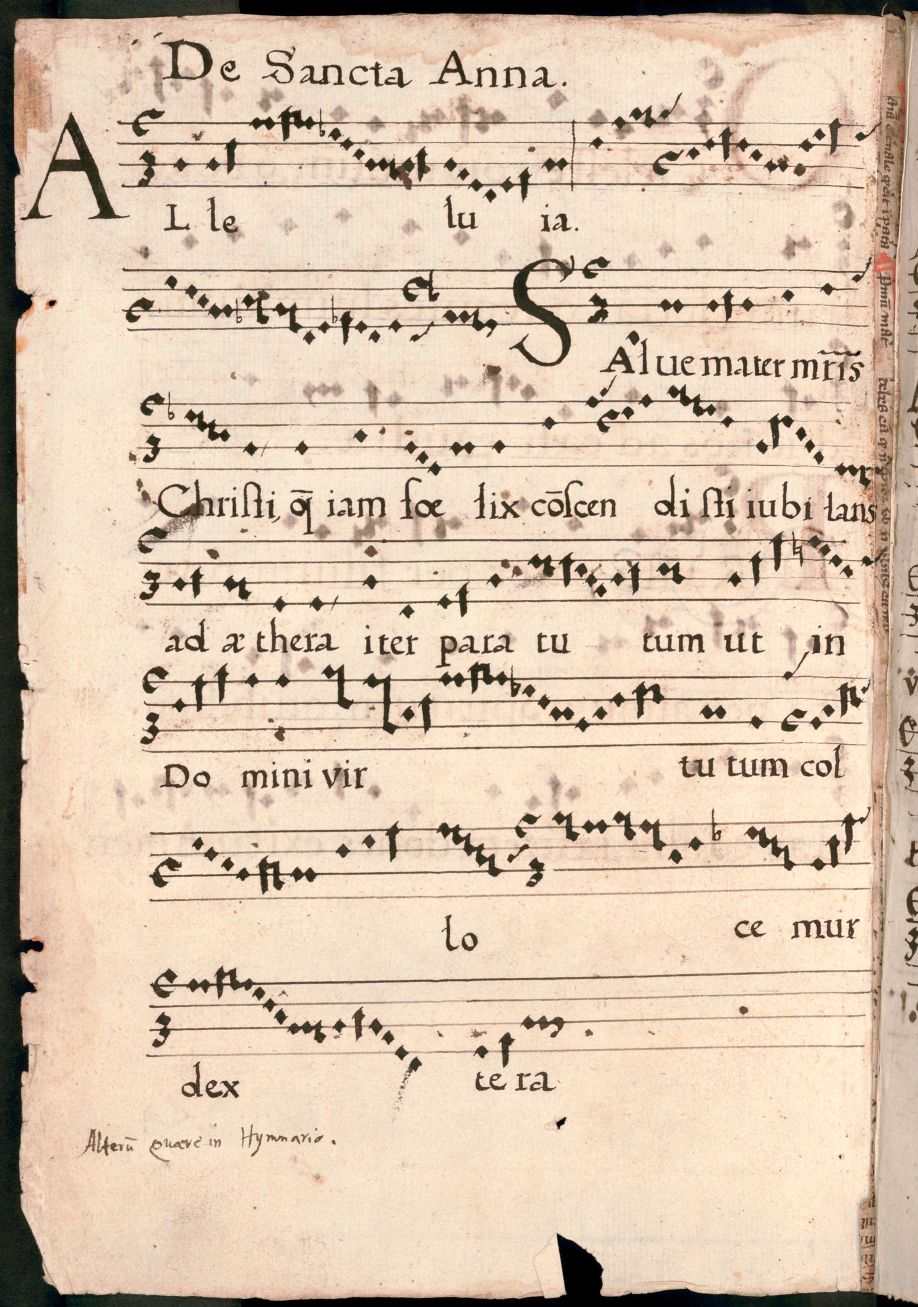 De Sancta Anna.
AL le lu ia.
SAlue mater mr̄is
Christi, q̄ iam fœ lix cōscen di sti iubi lans
ad æ thera iter para tu tum ut in
Do mini vir tu tum col
lo ce mur
dex te ra
Alterū quære in Hymnario.